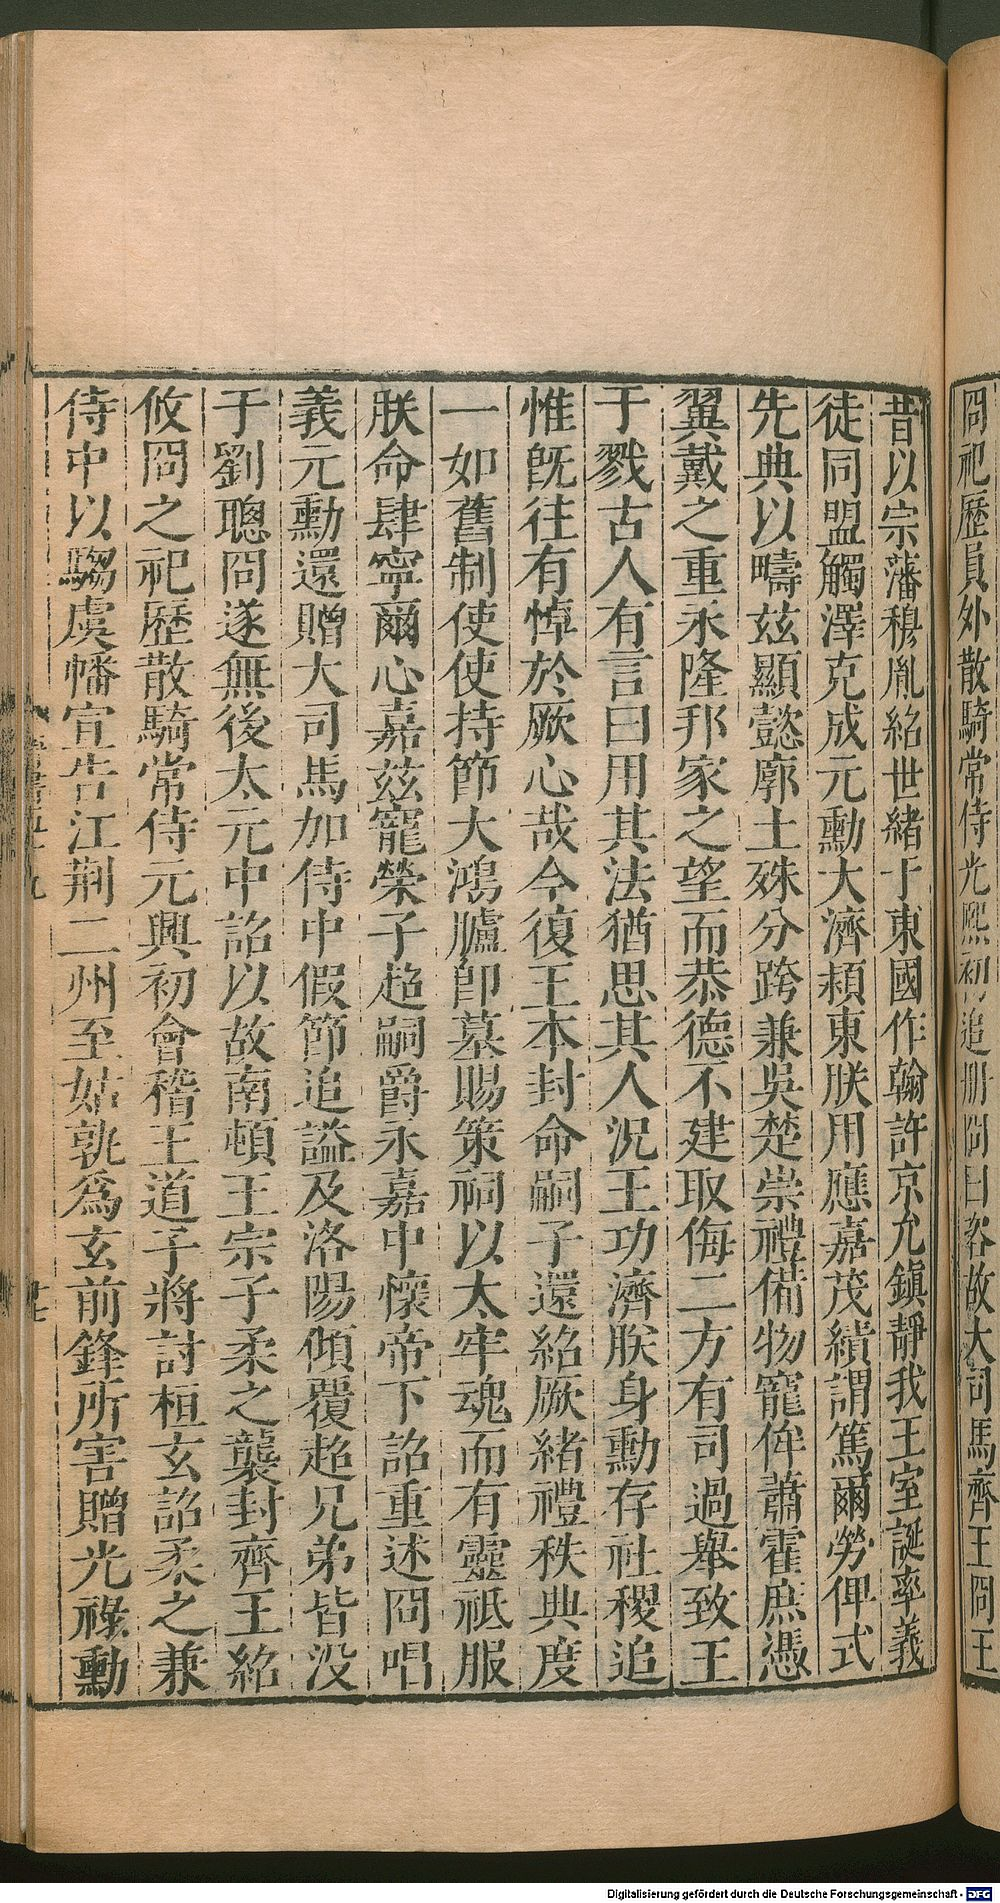 冏祀歷員外散騎常侍光熙初追册冏曰咨故大司馬齊王冏王
昔以宗藩穆胤紹世緒于東國作翰許京允鎭靜我王室誕率義
徒同盟觸澤克成元勳大濟潁東朕用應嘉茂績謂篤爾勞俾式
先典以疇茲顯懿廓土殊分跨兼吳楚崇禮備物寵侔蕭霍庶憑
翼戴之重永隆邦家之望而恭德不建取侮二方有司過舉致王
于戮古人有言曰用其法猶思其人況王功濟朕身勳存社稷追
惟旣往有悼於厥心哉今復王本封命嗣子還紹厥緒禮秩典度
一如舊制使使持節大鴻臚卽墓賜策祠以太牢魂而有靈祗服
朕命肆寧爾心嘉茲寵榮子超嗣爵永嘉中懷帝下詔重述冏唱
義元勳還贈大司馬加侍中假節追諡及洛陽傾覆超兄弟皆没
于劉聰冏遂無後太元中詔以故南頓王宗子柔之襲封齊王紹
攸冏之祀歷散騎常侍元興初會稽王道子將討桓玄詔柔之兼
侍中以騶虞幡宣告江荆二州至姑孰爲玄前鋒所害贈光祿勳
Digitalisierung gefördert durch die Deutsche Forschungsgemeinschaft - DFG